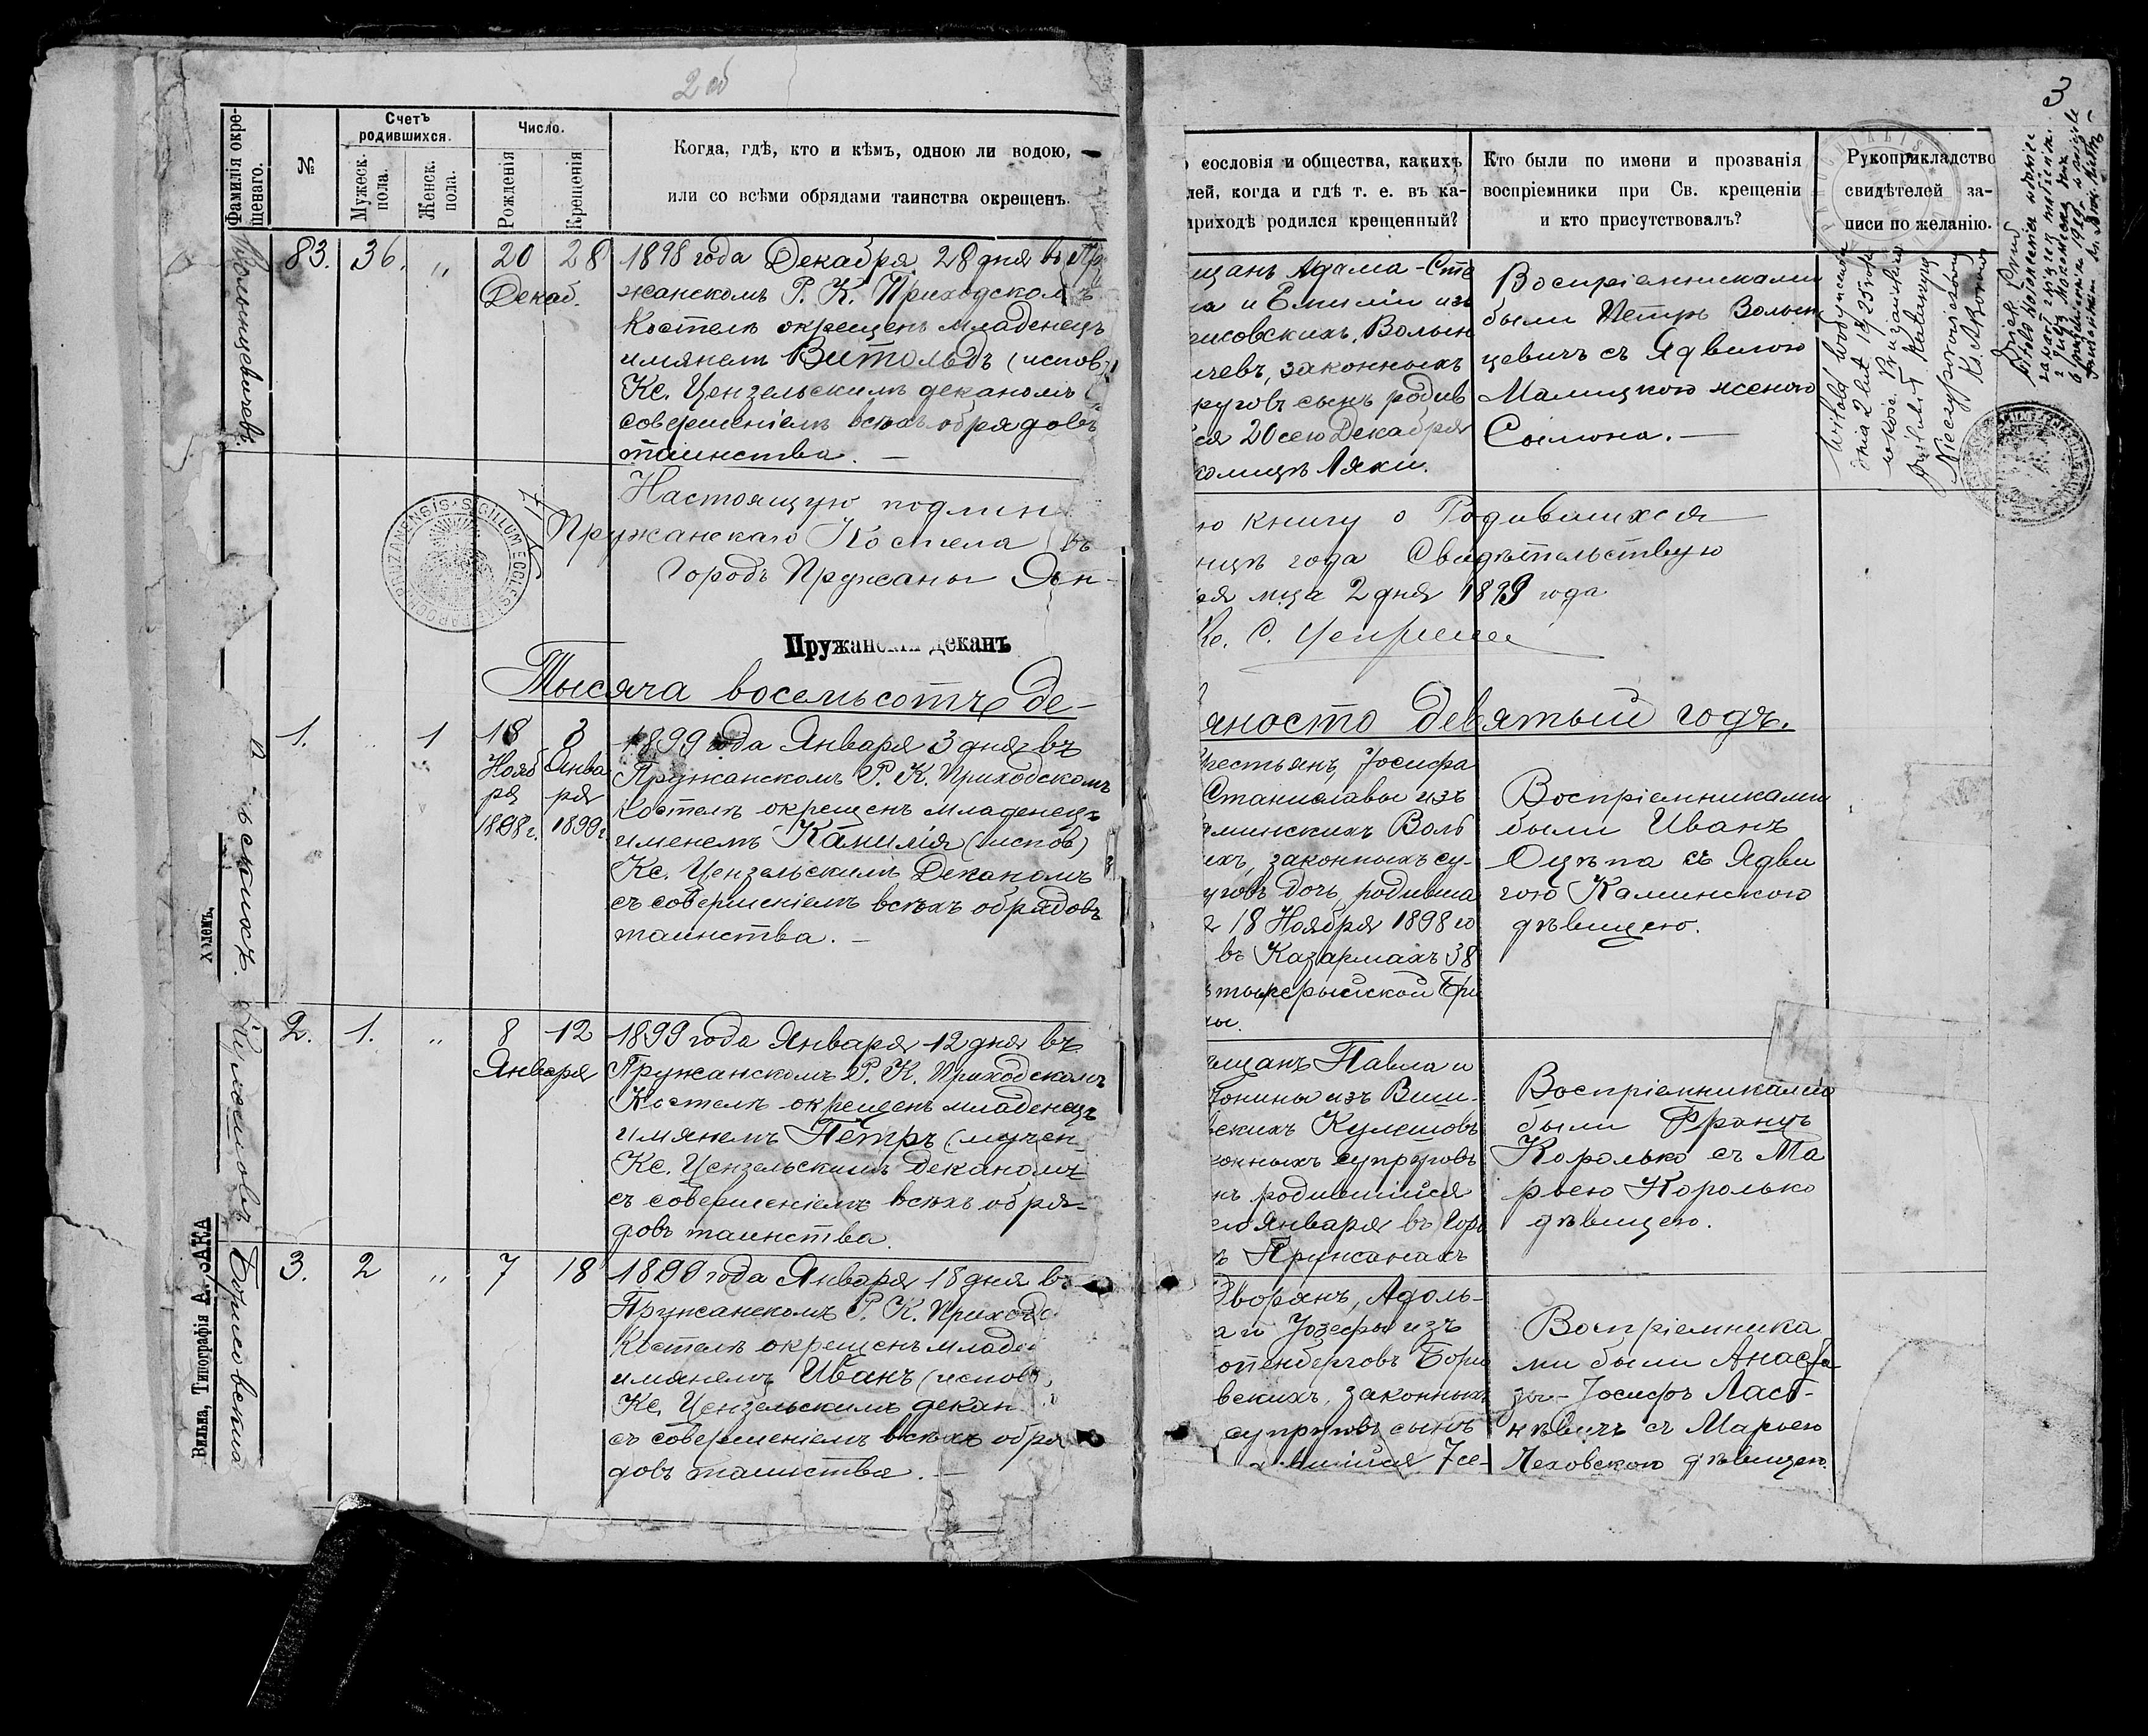 2об
3
Фамилія окре-
щенаго.
№
Счетъ
родившихся.
Мужеск.
пола.
Женск.
пола.
Число.
Рожденія
Крещенія
Когда, гдѣ, кто и кѣмъ, одною ли водою,
или со всѣми обрядами таинства окрещенъ.
сословія и общества, какихъ
лей, когда и гдѣ т. е. въ ка-
приходѣ родился крещенный?
Кто были по имени и прозванія
воспріемники при Св. крещеніи
и кто присутствовалъ?
Рукоприкладство
свидѣтелей за-
писи по желанію.
83. 36. „ 20 28
Декаб.
1898 года Декабря 28 дня въ Пр
жанскомъ Р. К. Приходскомъ
Костелѣ окрещенъ младенецъ
имянемъ Витольдъ (испов)
Кс. Цензельскимъ деканомъ
совершеніемъ всѣхъ обрядовъ
таинства. —
щанъ Адама-Сте
на и Емиліи изъ
рисовскихъ, Волын
ичевъ, законныхъ
пруговъ сынъ родив
ся 20 сего Декабря
колицѣ Ляки.
Воспріемниками
были Петръ Волын
цевичъ съ Ядвигою
Малицкою женою
Симона. —
Настоящую подлин
Пружанскаго Костела въ
Городъ Пружаны Ян-
ю книгу о Родившихся
нцѣ года Свидѣтельствую
ря мца 2 дня 1899 года
Кс. С.
SIGILLUM ECCLESIAE PAROCH PRUZANENSIS
Пружанскій Деканъ
Тысяча восемьсотъ де-
вяносто девятый годъ.
1. „ 1 18 3
Нояб Янва
ря ря
1898 г. 1899 г.
1899 года Января 3 дня въ
Пружанскомъ Р. К. Приходскомъ
Костелѣ окрещенъ младенецъ
именемъ Камилія (испов)
Кс. Цензельскимъ Деканомъ
съ совершеніемъ всѣхъ обрядовъ
таинства. —
Крестьянъ, Іосифа
Станиславы изъ
аминскихъ Воль
ихъ, законныхъ су-
уговъ дочь, родивша
я 18 Ноября 1898 го
въ Казармахъ 38
тилерыйской Бри
ды.
Воспріемниками
были Иванъ
Оцѣпа съ Ядви
гою Каминскою
дѣвицею.
2. 1. „ 8 12
Января
1899 года Января 12 дня въ
Пружанскомъ Р. К. Приходскомъ
Костелѣ окрещенъ младенецъ
имянемъ Петръ (мучен
Кс. Цензельскимъ деканомъ
съ совершеніемъ всѣхъ обря-
довъ таинства.
ѣщанъ Павла и
тонины изъ Виш-
вскихъ Кулешовъ
конныхъ супруговъ
нъ родившійся
его Января въ Горо
ѣ Пружанахъ
Воспріемниками
были Францъ
Королько съ Ма
рьею Королько
дѣвицею.
3. 2 „ 7 18
Борисовскій
1899 года Января 18 дня въ
Пружанскомъ Р. К. Приходс
Костелѣ окрещенъ младе
имянемъ Иванъ (испов
Кс. Цензельскимъ декан
съ совершеніемъ всѣхъ обря
довъ таинства. —
Дворянъ, Адоль-
а и Іозефы изъ
отенберговъ Бори
вскихъ, законныхъ
супруговъ сынъ
вшійся 7 се-
Воспріемника
ми были Анаста
зы-Іосифъ Ласт-
нѣвичъ съ Марьею
Леховскою дѣвицею.
Вильна, Типографія А.